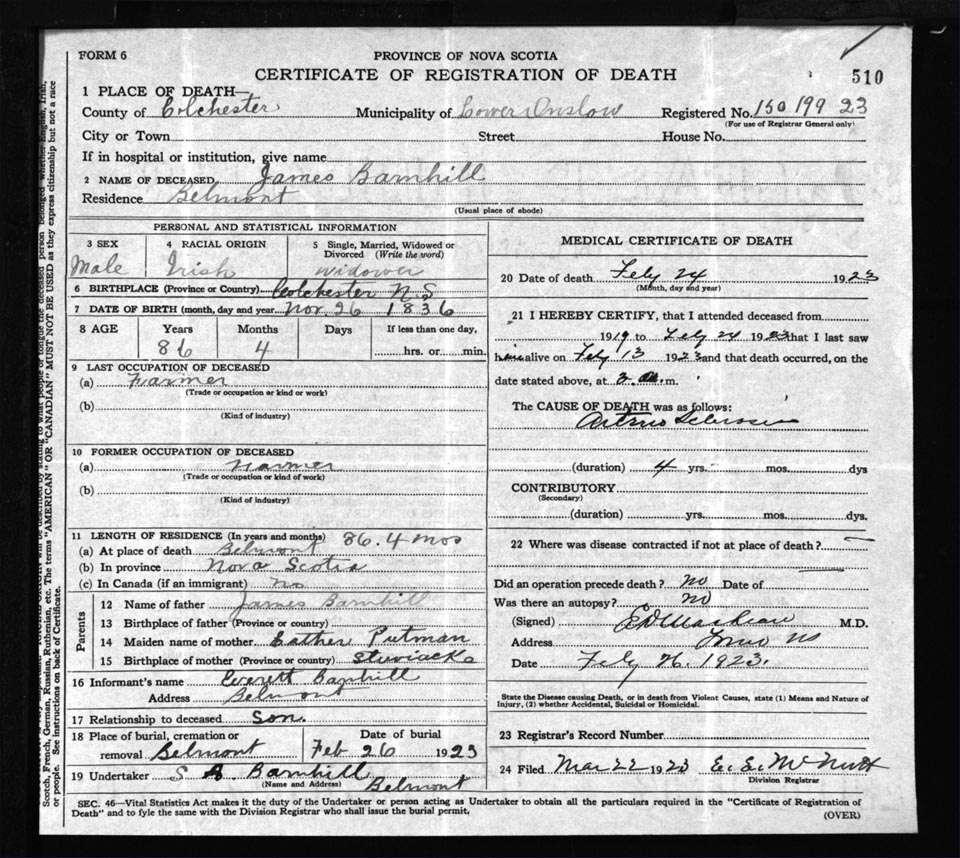 FORM 6
PROVINCE OF NOVA SCOTIA
CERTIFICATE OF REGISTRATION OF DEATH
510
1 PLACE OF DEATH—
County of Colchester Municipality of Lower Onslow Registered No. 150 199 23
(For use of Registrar General only)
City or Town Street House No.
If in hospital or institution, give name
2 NAME OF DECEASED James Barnhill
Residence Belmont
(Usual place of abode)
PERSONAL AND STATISTICAL INFORMATION
3 SEX 4 RACIAL ORIGIN 5 Single, Married, Widowed or Divorced (Write the word)
Male Irish widower
6 BIRTHPLACE (Province or Country) Colchester N.S
7 DATE OF BIRTH (month, day and year) Nov. 26 1836
8 AGE Years Months Days If less than one day,
86 4 hrs. or min.
9 LAST OCCUPATION OF DECEASED
(a) Farmer
(Trade or occupation or kind or work)
(b)
(Kind of industry)
10 FORMER OCCUPATION OF DECEASED
(a) Farmer
(Trade or occupation or kind of work)
(b)
(Kind of industry)
11 LENGTH OF RESIDENCE (In years and months) 86. 4 mos
(a) At place of death Belmont
(b) In province Nova Scotia
(c) In Canada (if an immigrant) no
Parents
12 Name of father James Barnhill
13 Birthplace of father (Province or country)
14 Maiden name of mother Eather Putman
15 Birthplace of mother (Province or country) Stewiacke
16 Informant's name Everett Barnhill
Address Belmont
17 Relationship to deceased Son.
18 Place of burial, cremation or Date of burial
removal Belmont Feb 26 1923
19 Undertaker S A Barnhill
(Name and Address) Belmont
MEDICAL CERTIFICATE OF DEATH
20 Date of death Feby 24 1923
(Month, day and year)
21 I HEREBY CERTIFY, that I attended deceased from
1919 to Feby 24 1923 that I last saw
him alive on Feby 13 1923 and that death occurred, on the
date stated above, at 3 a.m.
The CAUSE OF DEATH was as follows:
Arterio Sclerosis
(duration) 4 yrs. mos. dys
CONTRIBUTORY
(Secondary)
(duration) yrs. mos. dys.
22 Where was disease contracted if not at place of death?
Did an operation precede death? no Date of
Was there an autopsy? no
(Signed) M.D.
Address Truro NS
Date Feby 26. 1923.
State the Disease causing Death, or in death from Violent Causes, state (1) Means and Nature of
Injury, (2) whether Accidental, Suicidal or Homicidal.
23 Registrar's Record Number
24 Filed Mar 22 1923 E. E. McNutt
Division Registrar
SEC. 46—Vital Statistics Act makes it the duty of the Undertaker or person acting as Undertaker to obtain all the particulars required in the "Certificate of Registration of
Death" and to fyle the same with the Division Registrar who shall issue the burial permit.
(OVER)
Scotch, French, German, Russian, Ruthenian, etc. The terms "AMERICAN" OR "CANADIAN" MUST NOT BE USED as they express citizenship but not a race
or people. See instructions on back of Certificate.